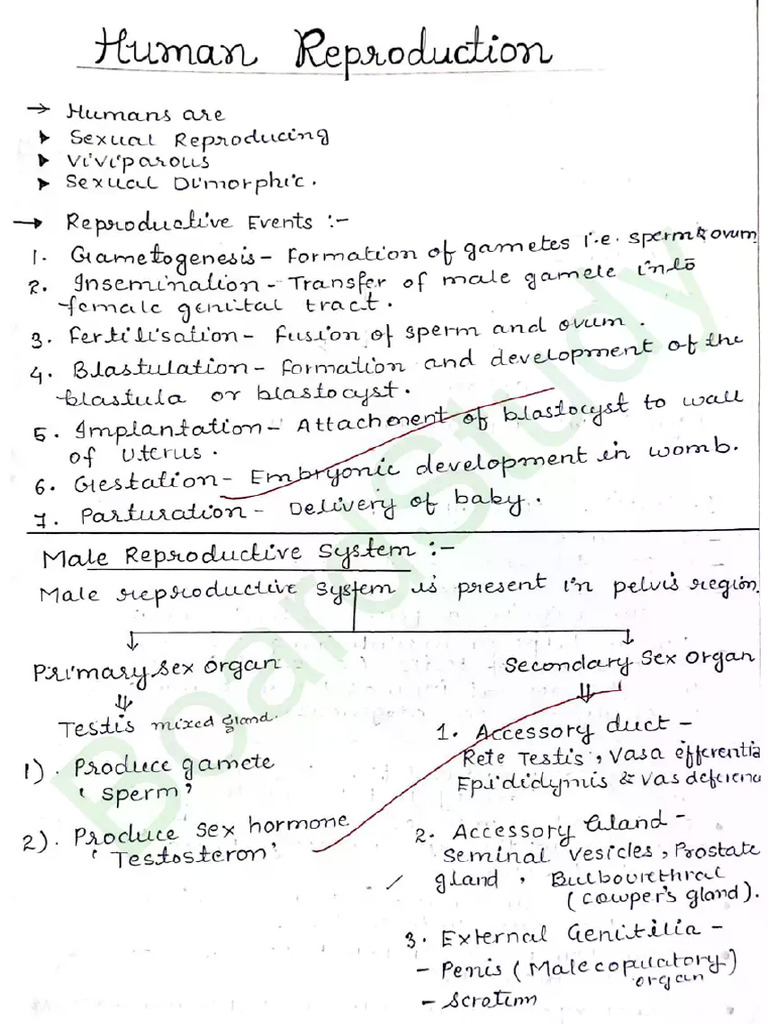 Human Reproduction
→ Humans are
➤ Sexual Reproducing
➤ Viviparous
➤ Sexual Dimorphic.
→ Reproductive Events :-
1. Gametogenesis - Formation of gametes i.e. sperm & ovum
2. Insemination - Transfer of male gamete into
female genital tract.
3. Fertilisation - Fusion of sperm and ovum.
4. Blastulation - Formation and development of the
blastula or blastocyst.
5. Implantation - Attachment of blastocyst to wall
of uterus.
6. Gestation - Embryonic development in womb.
7. Parturation - Delivery of baby.
Male Reproductive System :-
Male reproductive system is present in pelvis region.
Primary sex organ
Testis mixed gland.
1). Produce gamete
'sperm'
2). Produce sex hormone
'Testosteron'
Secondary Sex Organ
1. Accessory duct -
Rete Testis, Vasa efferentia
Epididymis & Vas deferenc
2. Accessory Gland -
Seminal Vesicles, Prostate
gland, Bulbourethral
(Cowper's gland).
3. External Genitilia -
- Penis (Male copulatory
organ)
- Scrotim
BoardStudy